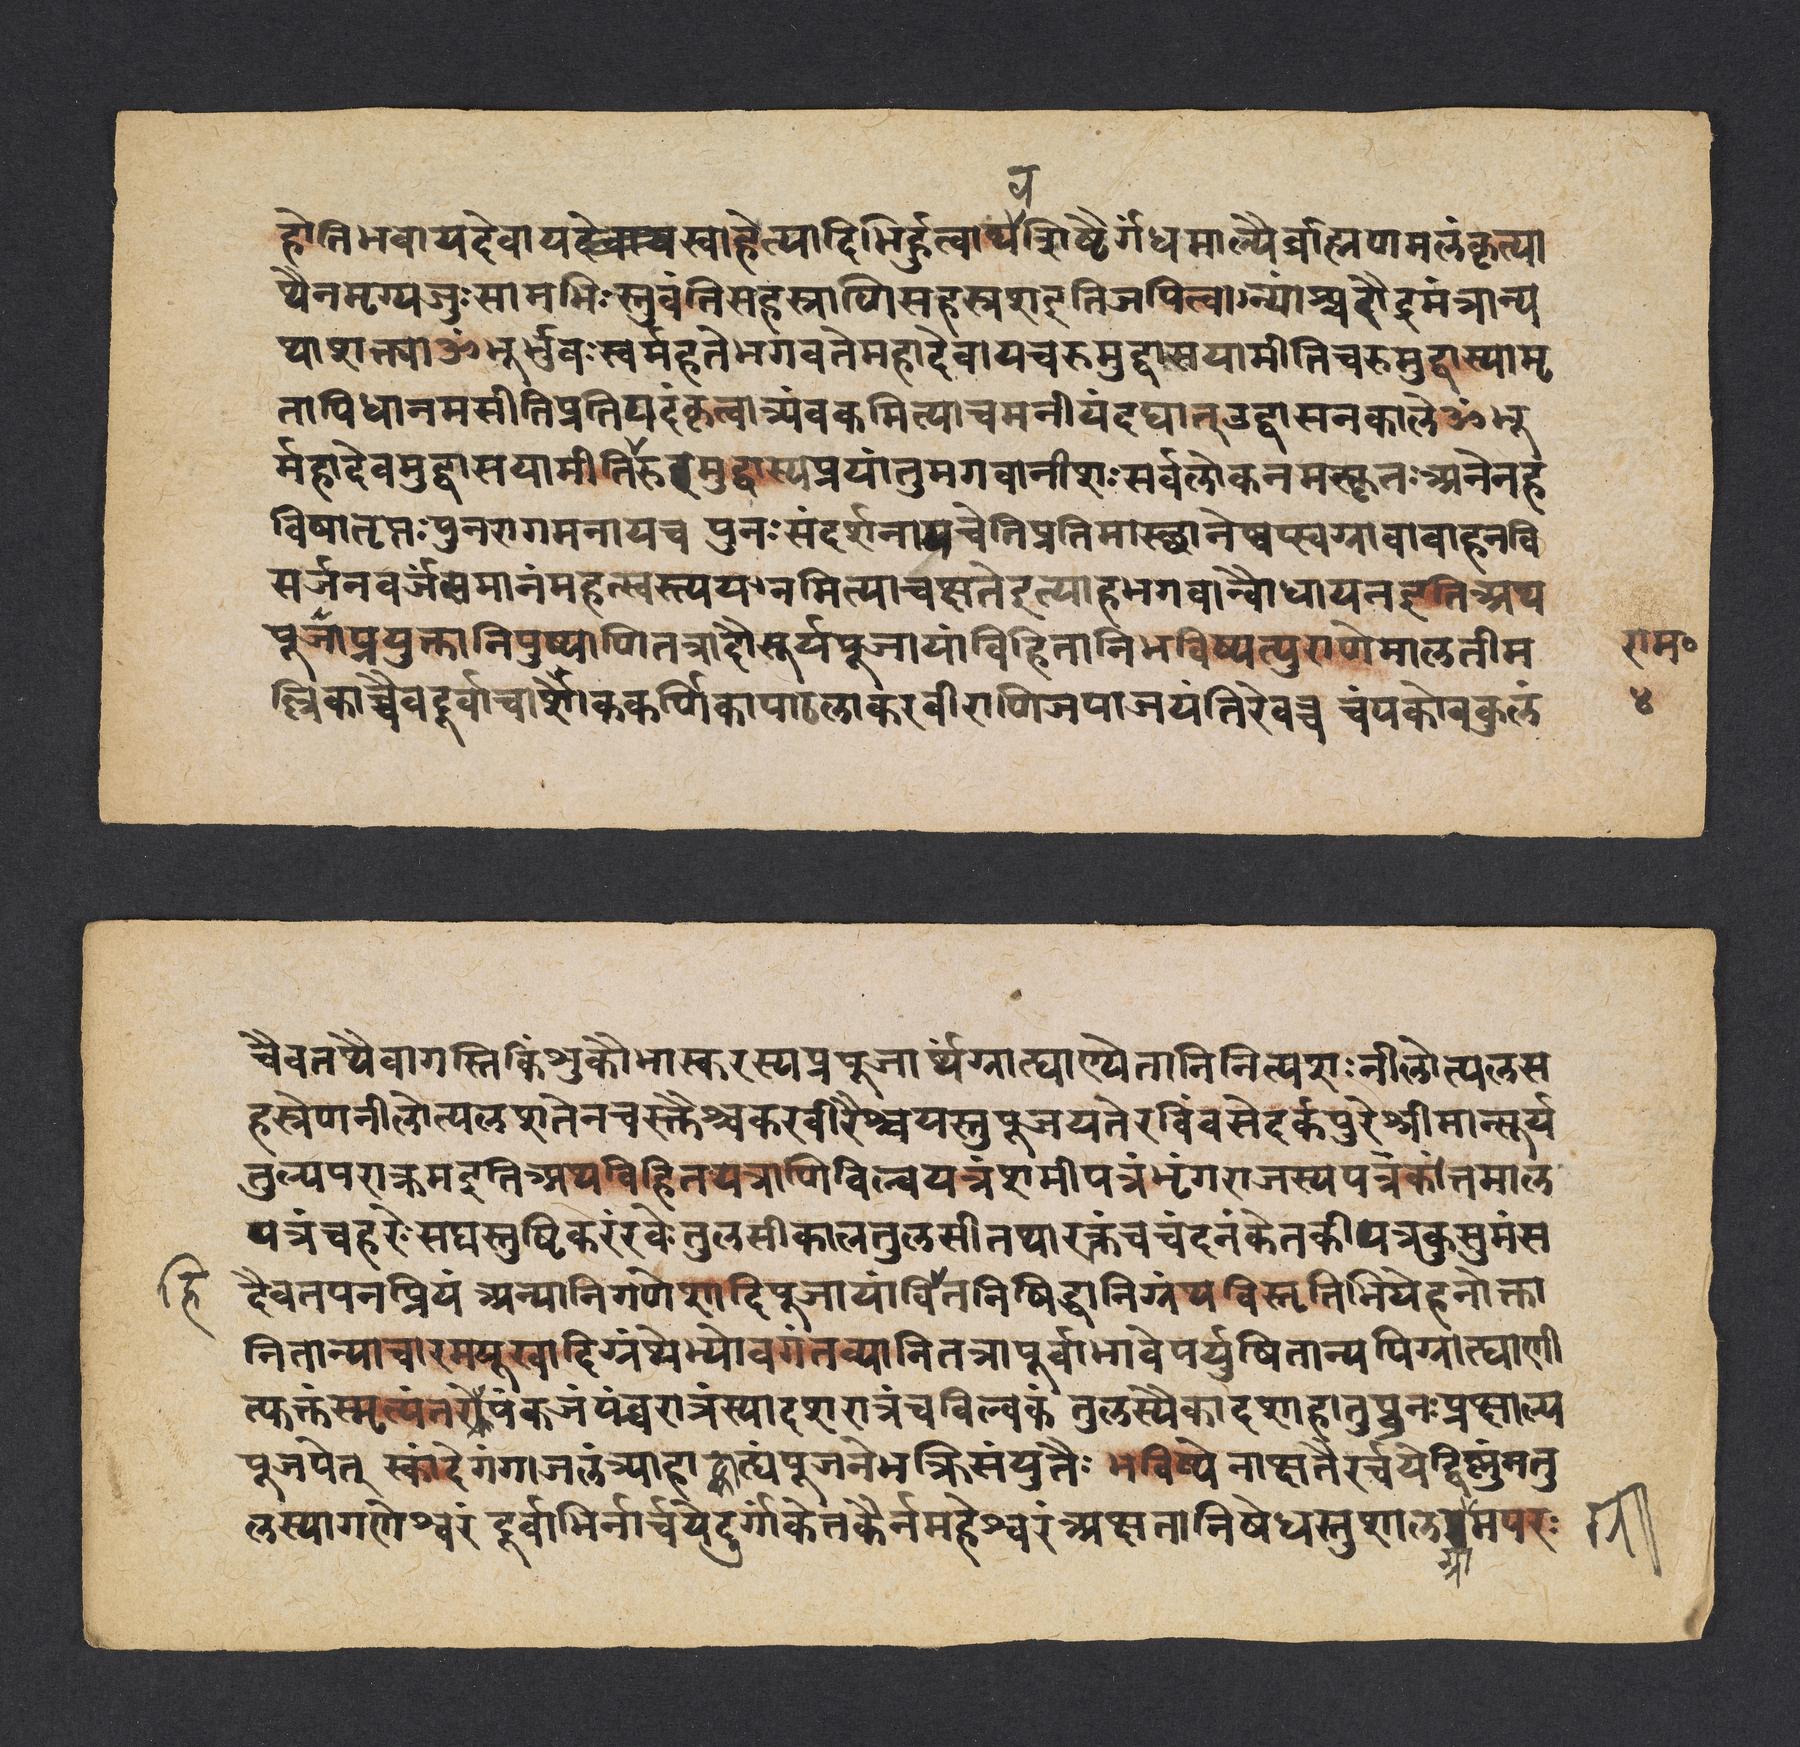 व
होतिभवायदेवायदेवायस्वाहेत्यादिभिर्हुत्वाथशिष्टैर्गंधमाल्यैर्ब्राह्मणमलंकृत्या
थैनमृग्यजुःसामभिःस्तुवंतिसहस्राणिसहस्रशइतिजपित्वान्यांश्चरौद्रमंत्रान्य
थाशक्त्याॐभूर्भुवःस्वर्महतेभगवतेमहादेवायचरुमुद्वासयामीतिचरुमुद्वास्यामृ
तापिधानमसीतिप्रतिपदंकृत्वात्र्यंबकमित्याचमनीयंदद्यात्उद्वासनकालेॐभू
र्महादेवमुद्वासयामीतिरुवमुद्वास्यप्रयांतुभगवानीशःसर्वलोकनमस्कृतःअनेनह
विषातृप्तःपुनरागमनायच पुनःसंदर्शनायचेतिप्रतिमास्थानेष्वप्स्वग्नावावाहनवि
सर्जनवर्जंसमानंमहत्स्वस्त्ययनमित्याचक्षतेइत्याहभगवान्बौधायनइतिअथ
पूजाप्रयुक्तानिपुष्पाणितत्रादौसूर्यपूजायांविहितानिभविष्यत्पुराणेमालतीम
ल्लिकाच्चैवदूर्वाचाशोककर्णिकापाटलाकरवीराणिजपाजयंतिरेवच चंपकोबकुलं
राम॰
४
चैवतथैवागस्तिकिंशुकौभास्करस्यप्रपूजार्थंग्राह्याण्येतानिनित्यशःनीलोत्पलस
हस्रेणनीलोत्पलशतेनचरक्तैश्चकरवीरैश्चयस्तुपूजयतेरविंवसेदर्कपुरेश्रीमान्सूर्य
तुल्यपराक्रमइतिअथविहितपत्राणिबिल्वपत्रंशमीपत्रंभृंगराजस्यपत्रकंतमाल
पत्रंचहरेःसद्यस्तुष्टिकरंरवेःतुलसीकालतुलसीतथारक्तंचचंदनंकेतकीपत्रकुसुमंस
दैवतपनप्रियं अन्यानिगणेशादिपूजायांवितनिषिद्धानिग्रंथविस्तृतिभियेहनोक्ता
हि
नितान्याचारमयूखादिग्रंथेभ्योवगंतव्यानितत्रापूर्वाभावेपर्युषितान्यपिग्राह्याणी
त्युक्तंस्मृत्यंतरेपंकजंपंचरात्रंस्याद्दशरात्रंचबिल्वकं तुलस्यैकादशाहातुपुनःप्रक्षाल्य
पूजयेत् स्कांदेगंगाजलंत्र्याहाद्ग्राह्यंपूजनेभक्तिसंयुतैः भविष्ये नाक्षतैरर्चयेद्विष्णुंनतु
लस्यागणेश्वरं दूर्वाभिर्नार्चयेद्दुर्गांकेतकैर्नमहेश्वरंअक्षतानिषेधस्तुशालमपरः
ग्रा